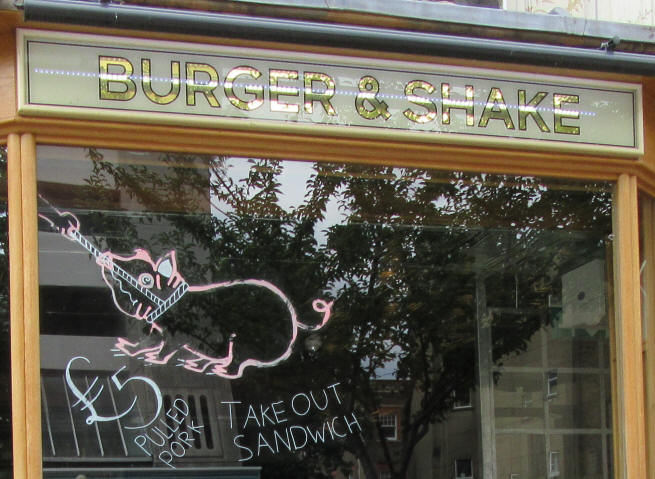 BURGER & SHAKE
£5
PULLED
PORK
TAKE OUT
SANDWICH